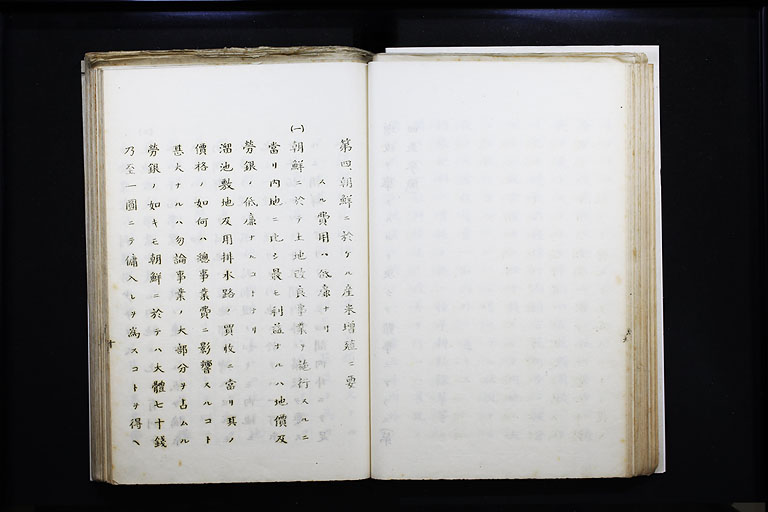 第四、朝鮮ニ於ケル産米增殖ニ要
スル費用ハ低廉ナリ
(一)朝鮮ニ於テ土地改良事業ヲ施行スルニ
當リ內地ニ比シ最モ利益ナルハ地價及
勞銀ノ低廉ナルコトナリ
溜池敷地及用排水路ノ買收ニ當リ其ノ
價格ノ如何ハ總事業費ニ影響スルコト
甚大ナルハ勿論事業ノ大部分ヲ占ムル
勞銀ノ如キモ朝鮮ニ於テハ大體七十錢
乃至一圓ニテ傭入レヲ爲スコトヲ得ヘ